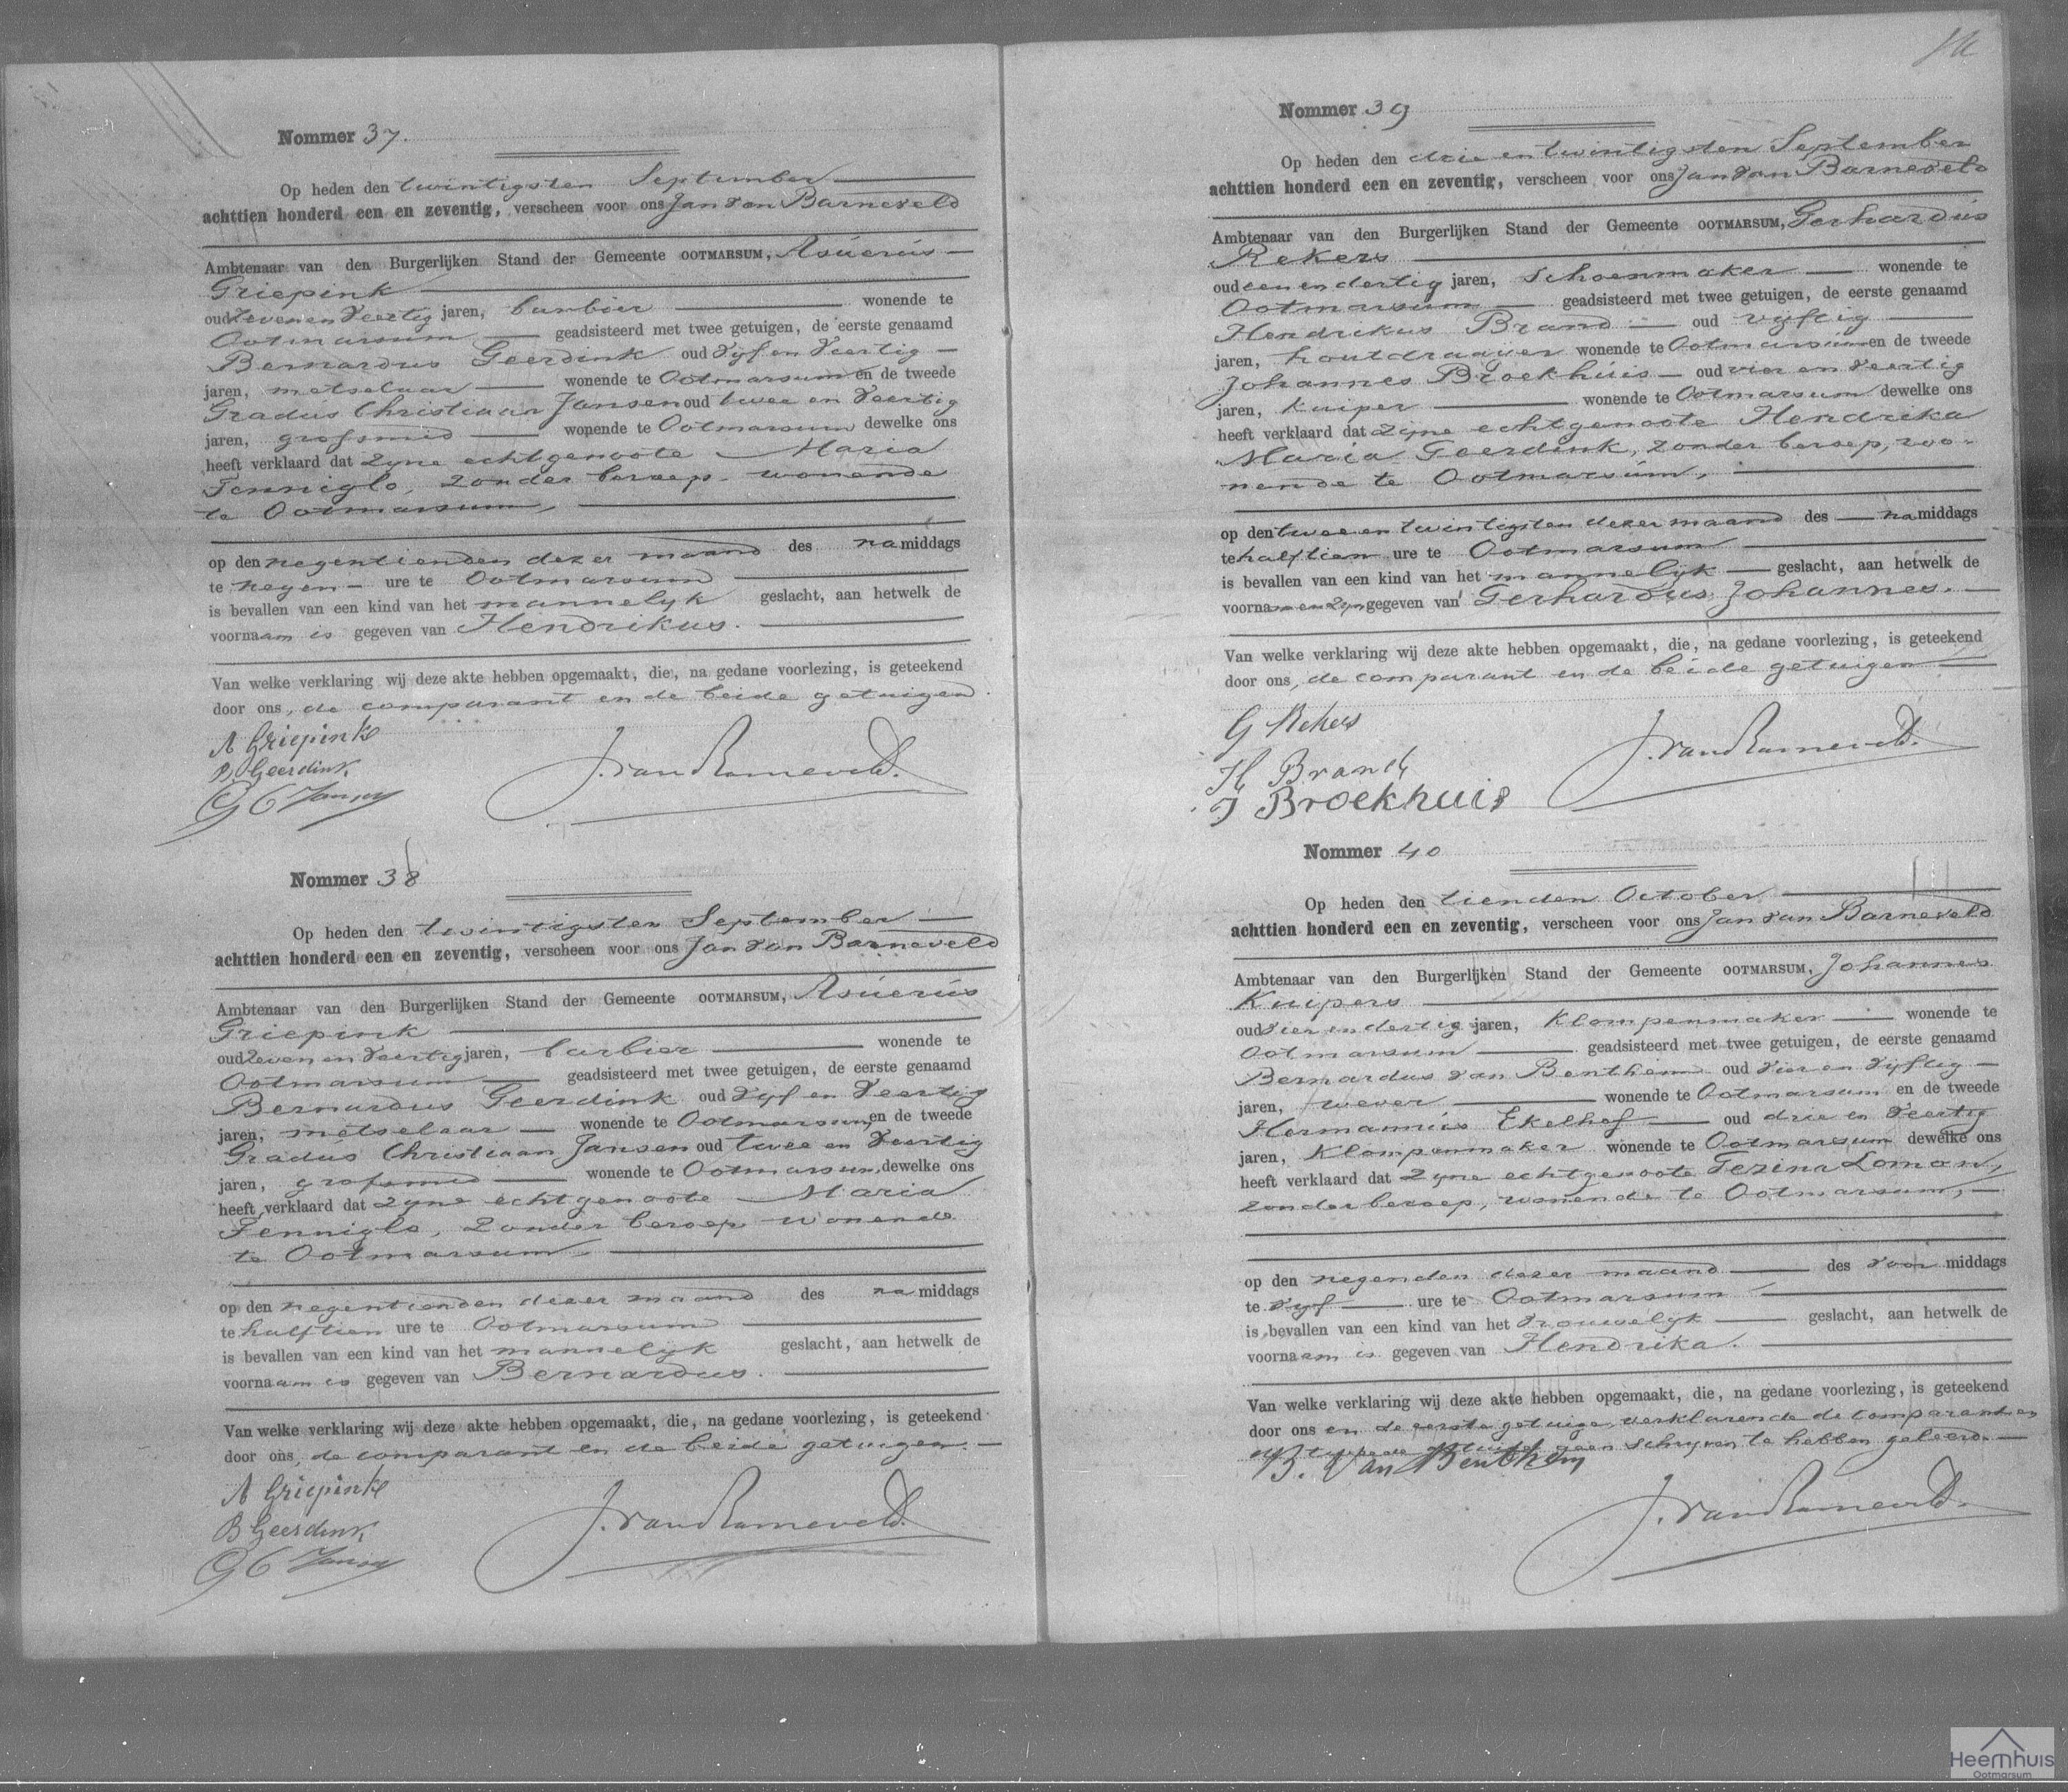 Nommer 37.
Op heden den twintigsten September
achttien honderd een en zeventig, verscheen voor ons Jan van Barneveld
Ambtenaar van den Burgerlijken Stand der Gemeente OOTMARSUM, Asuerus
Griepink
oud zeven en veertig jaren, barbier wonende te
Ootmarsum geadsisteerd met twee getuigen, de eerste genaamd
Bernardus Geerdink oud vijf en veertig
jaren, metselaar wonende te Ootmarsum en de tweede
Gradus Christiaan Jansen oud twee en veertig
jaren, grofsmid wonende te Ootmarsum dewelke ons
heeft verklaard dat zijne echtgenoote Maria
Tenniglo, zonder beroep, wonende
te Ootmarsum,
op den negentienden dezer maand des namiddags
te negen ure te Ootmarsum
is bevallen van een kind van het mannelijk geslacht, aan hetwelk de
voornaam is gegeven van Hendrikus.
Van welke verklaring wij deze akte hebben opgemaakt, die, na gedane voorlezing, is geteekend
door ons, de comparant en de beide getuigen.
A Griepink
B. Geerdink
G C Jansen
J. van Barneveld.
Nommer 38
Op heden den twintigsten September
achttien honderd een en zeventig, verscheen voor ons Jan van Barneveld
Ambtenaar van den Burgerlijken Stand der Gemeente OOTMARSUM, Asuerus
Griepink
oud zeven en veertig jaren, barbier wonende te
Ootmarsum geadsisteerd met twee getuigen, de eerste genaamd
Bernardus Geerdink oud vijf en veertig
jaren, metselaar wonende te Ootmarsum en de tweede
Gradus Christiaan Jansen oud twee en veertig
jaren, grofsmid wonende te Ootmarsum, dewelke ons
heeft verklaard dat zijne echtgenoote Maria
Tenniglo, zonder beroep wonende
te Ootmarsum,
op den negentienden dezer maand des namiddags
te half tien ure te Ootmarsum
is bevallen van een kind van het mannelijk geslacht, aan hetwelk de
voornaam is gegeven van Bernardus.
Van welke verklaring wij deze akte hebben opgemaakt, die, na gedane voorlezing, is geteekend
door ons, de comparant en de beide getuigen.
A Griepink
B Geerdink
G C Jansen
J. van Barneveld.
Nommer 39
Op heden den drie en twintigsten September
achttien honderd een en zeventig, verscheen voor ons Jan van Barneveld
Ambtenaar van den Burgerlijken Stand der Gemeente OOTMARSUM, Gerhardus
Rekers
oud een en dertig jaren, schoenmaker wonende te
Ootmarsum geadsisteerd met twee getuigen, de eerste genaamd
Hendrikus Brand oud vijftig
jaren, houtdraaijer wonende te Ootmarsum en de tweede
Johannes Broekhuis oud vier en veertig
jaren, kuiper wonende te Ootmarsum dewelke ons
heeft verklaard dat zijne echtgenoote Hendrika
Maria Geerdink, zonder beroep, wo-
nende te Ootmarsum,
op den twee en twintigsten dezer maand des namiddags
te half tien ure te Ootmarsum
is bevallen van een kind van het mannelijk geslacht, aan hetwelk de
voornamen zijn gegeven van Gerhardus Johannes.
Van welke verklaring wij deze akte hebben opgemaakt, die, na gedane voorlezing, is geteekend
door ons, de comparant en de beide getuigen
G Rekers
H Brand
J Broekhuis
J. van Barneveld.
Nommer 40
Op heden den tienden October
achttien honderd een en zeventig, verscheen voor ons Jan van Barneveld
Ambtenaar van den Burgerlijken Stand der Gemeente OOTMARSUM, Johannes
Kuipers
oud vier en dertig jaren, Klompenmaker wonende te
Ootmarsum geadsisteerd met twee getuigen, de eerste genaamd
Bernardus van Benthem oud vier en vijftig
jaren, wever wonende te Ootmarsum en de tweede
Hermannus Ekelhof oud drie en veertig
jaren, Klompenmaker wonende te Ootmarsum dewelke ons
heeft verklaard dat zijne echtgenoote Gezina Loman,
zonder beroep, wonende te Ootmarsum,
op den negenden dezer maand des voormiddags
te vijf ure te Ootmarsum
is bevallen van een kind van het vrouwelijk geslacht, aan hetwelk de
voornaam is gegeven van Hendrika.
Van welke verklaring wij deze akte hebben opgemaakt, die, na gedane voorlezing, is geteekend
door ons en de eerste getuige, verklarende de comparant en
de tweede getuige geen schrijven te hebben geleerd.
B. Van Benthem
J. van Barneveld.
Heemhuis
Ootmarsum